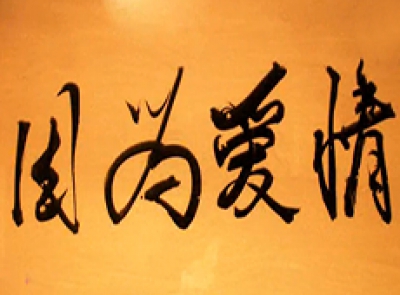 因为爱情